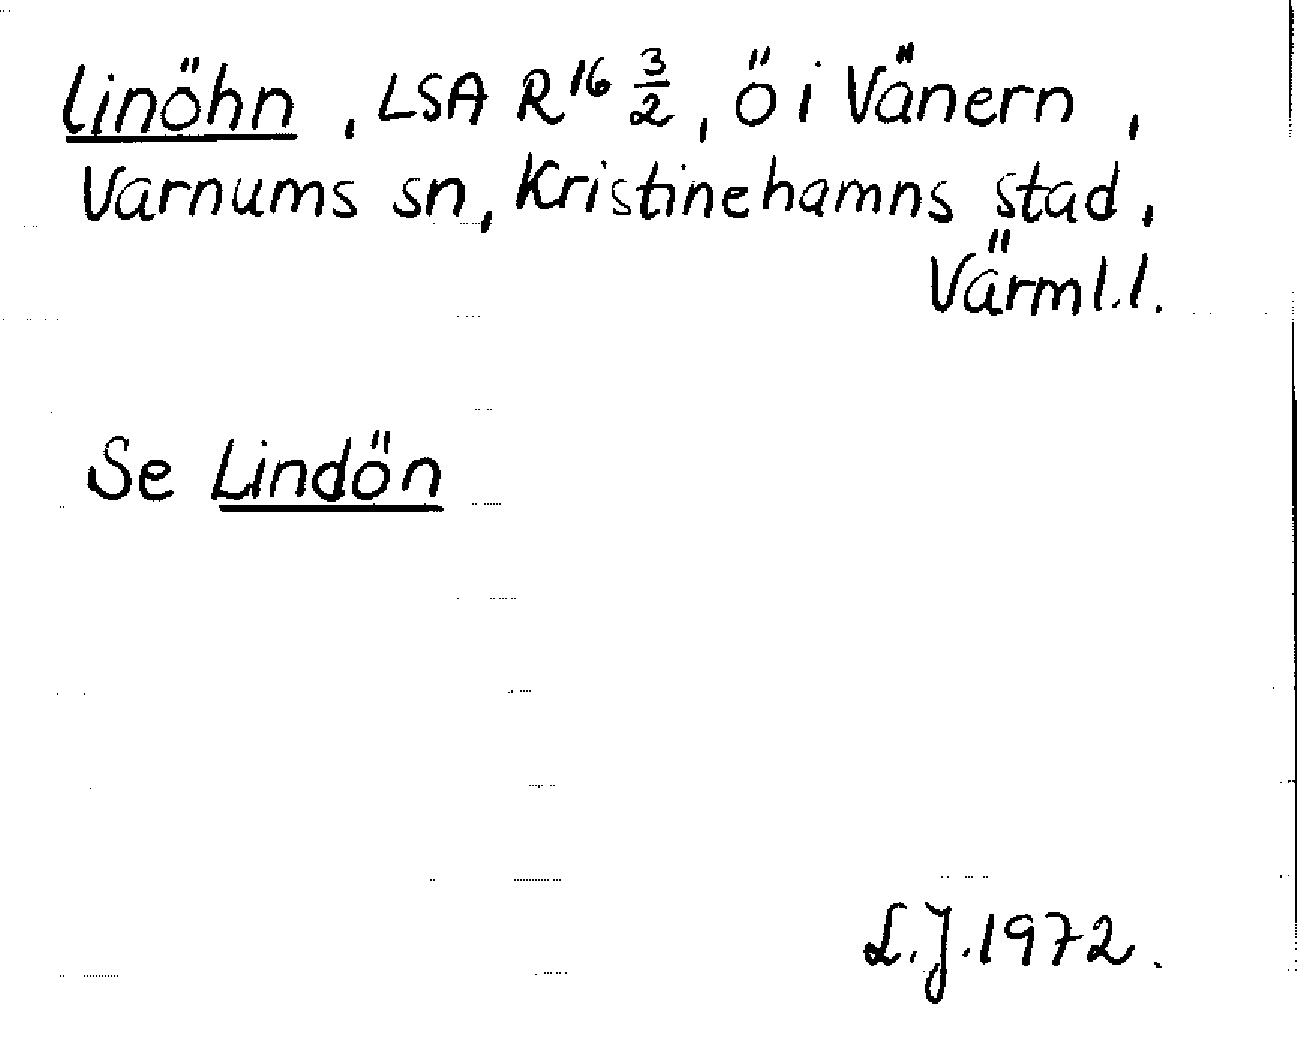 Linöhn, LSA R16 3/2, ö i Vänern,
Varnums sn, Kristinehamns stad,
Värml.l.
Se Lindön
L.J.1972.